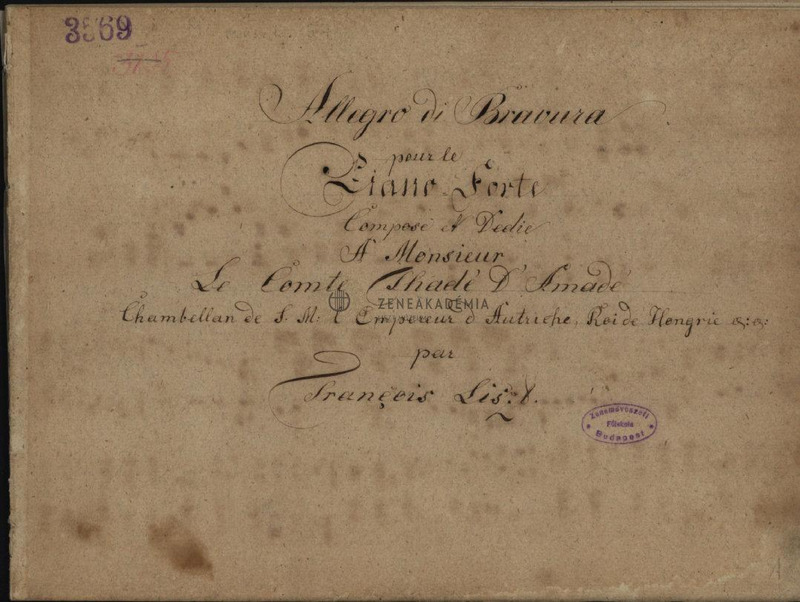 3569
Allegro di Bravura
pour le
Piano Forte
Composé et Dedie
A Monsieur
Le Comte Thadé D'Amadé
ZENEAKADÉMIA
Chambellan de S. M: l'Empereur d'Autriche, Roi de Hongrie &:&:
par
François Liszt.
Zeneművészeti
Főiskola
Budapest